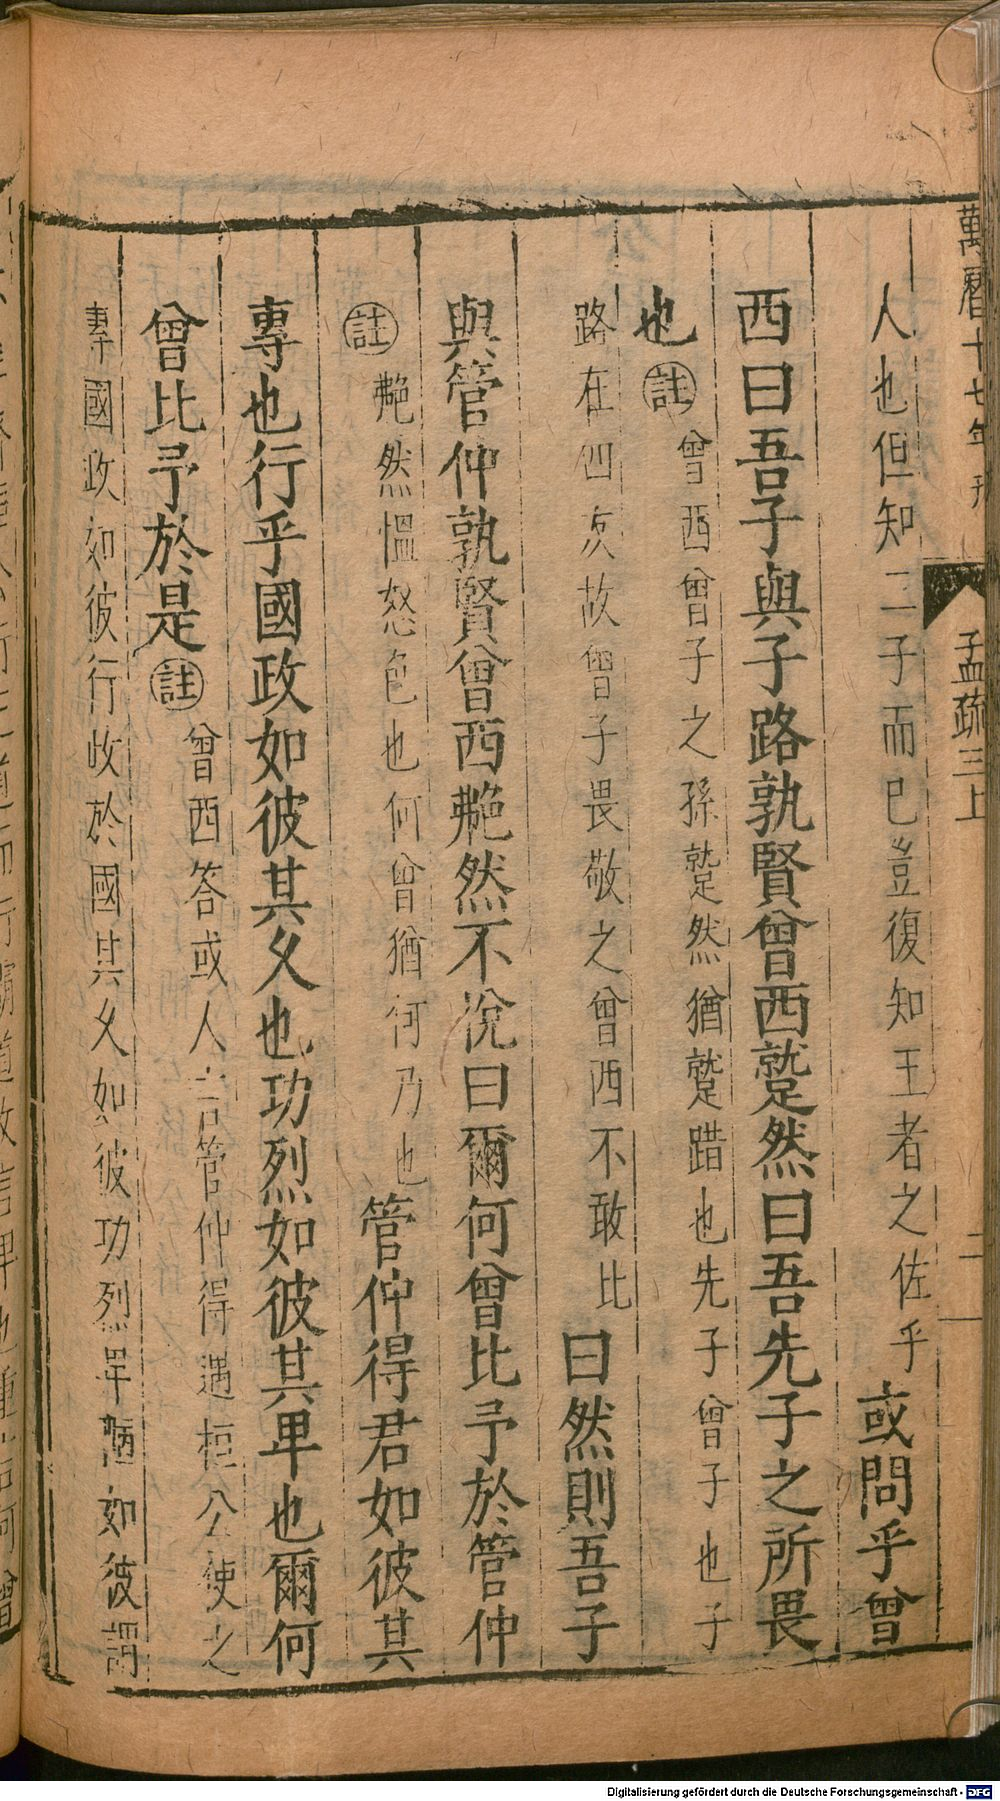 萬曆十七年刋
孟疏三上
二
人也但知二子而已豈復知王者之佐乎或問乎曾
西曰吾子與子路孰賢曾西蹵然曰吾先子之所畏
也註曾西曾子之孫蹵然猶蹵踖也先子曾子也子
路在四友故曾子畏敬之曾西不敢比曰然則吾子
與管仲孰賢曾西艴然不悅曰爾何曾比予於管仲
註艴然慍怒色也何曾猶何乃也管仲得君如彼其
專也行乎國政如彼其乆也功烈如彼其卑也爾何
曾比予於是註曾西答或人言管仲得遇桓公使之
專國政如彼行政於國其乆如彼功烈卑陋如彼謂
Digitalisierung gefördert durch die Deutsche Forschungsgemeinschaft - DFG